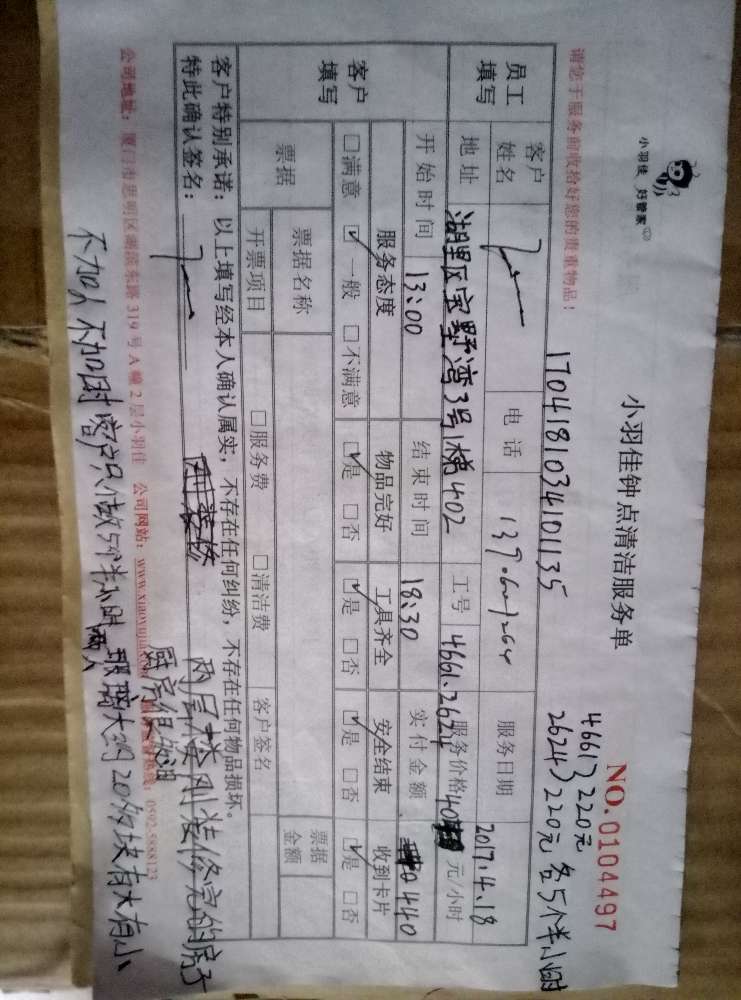 小羽佳 好管家
小羽佳钟点清洁服务单
NO.0104497
请您于服务前收拾好您的贵重物品!
1704181034101135
4661)220元
2624)220元 各5个半小时
员工填写
客户姓名
电话
服务日期 2017.4.18
地址 湖里区宝墅湾3号1梯402
工号 4661.2624
服务价格 40 元/小时
开始时间 13:00
结束时间 18:30
实付金额 440
客户填写
服务态度 物品完好 工具齐全 安全结束 收到卡片
□满意 ☑一般 □不满意 ☑是 □否 ☑是 □否 ☑是 □否 ☑是 □否
票据
票据名称
票据金额
开票项目 □服务费 □清洁费 客户签名
客户特别承诺:以上填写经本人确认属实,不存在任何纠纷,不存在任何物品损坏。
特此确认签名:
刚装修
两层楼刚装修完的房子
厨房很多油
公司地址:厦门市思明区湖滨东路319号A幢2层小羽佳 公司网站:www.xiaoyujia.com 热线:0592-5888123
不加人 不加时 客户只做5个半小时 两人 玻璃大约20多块有大有小